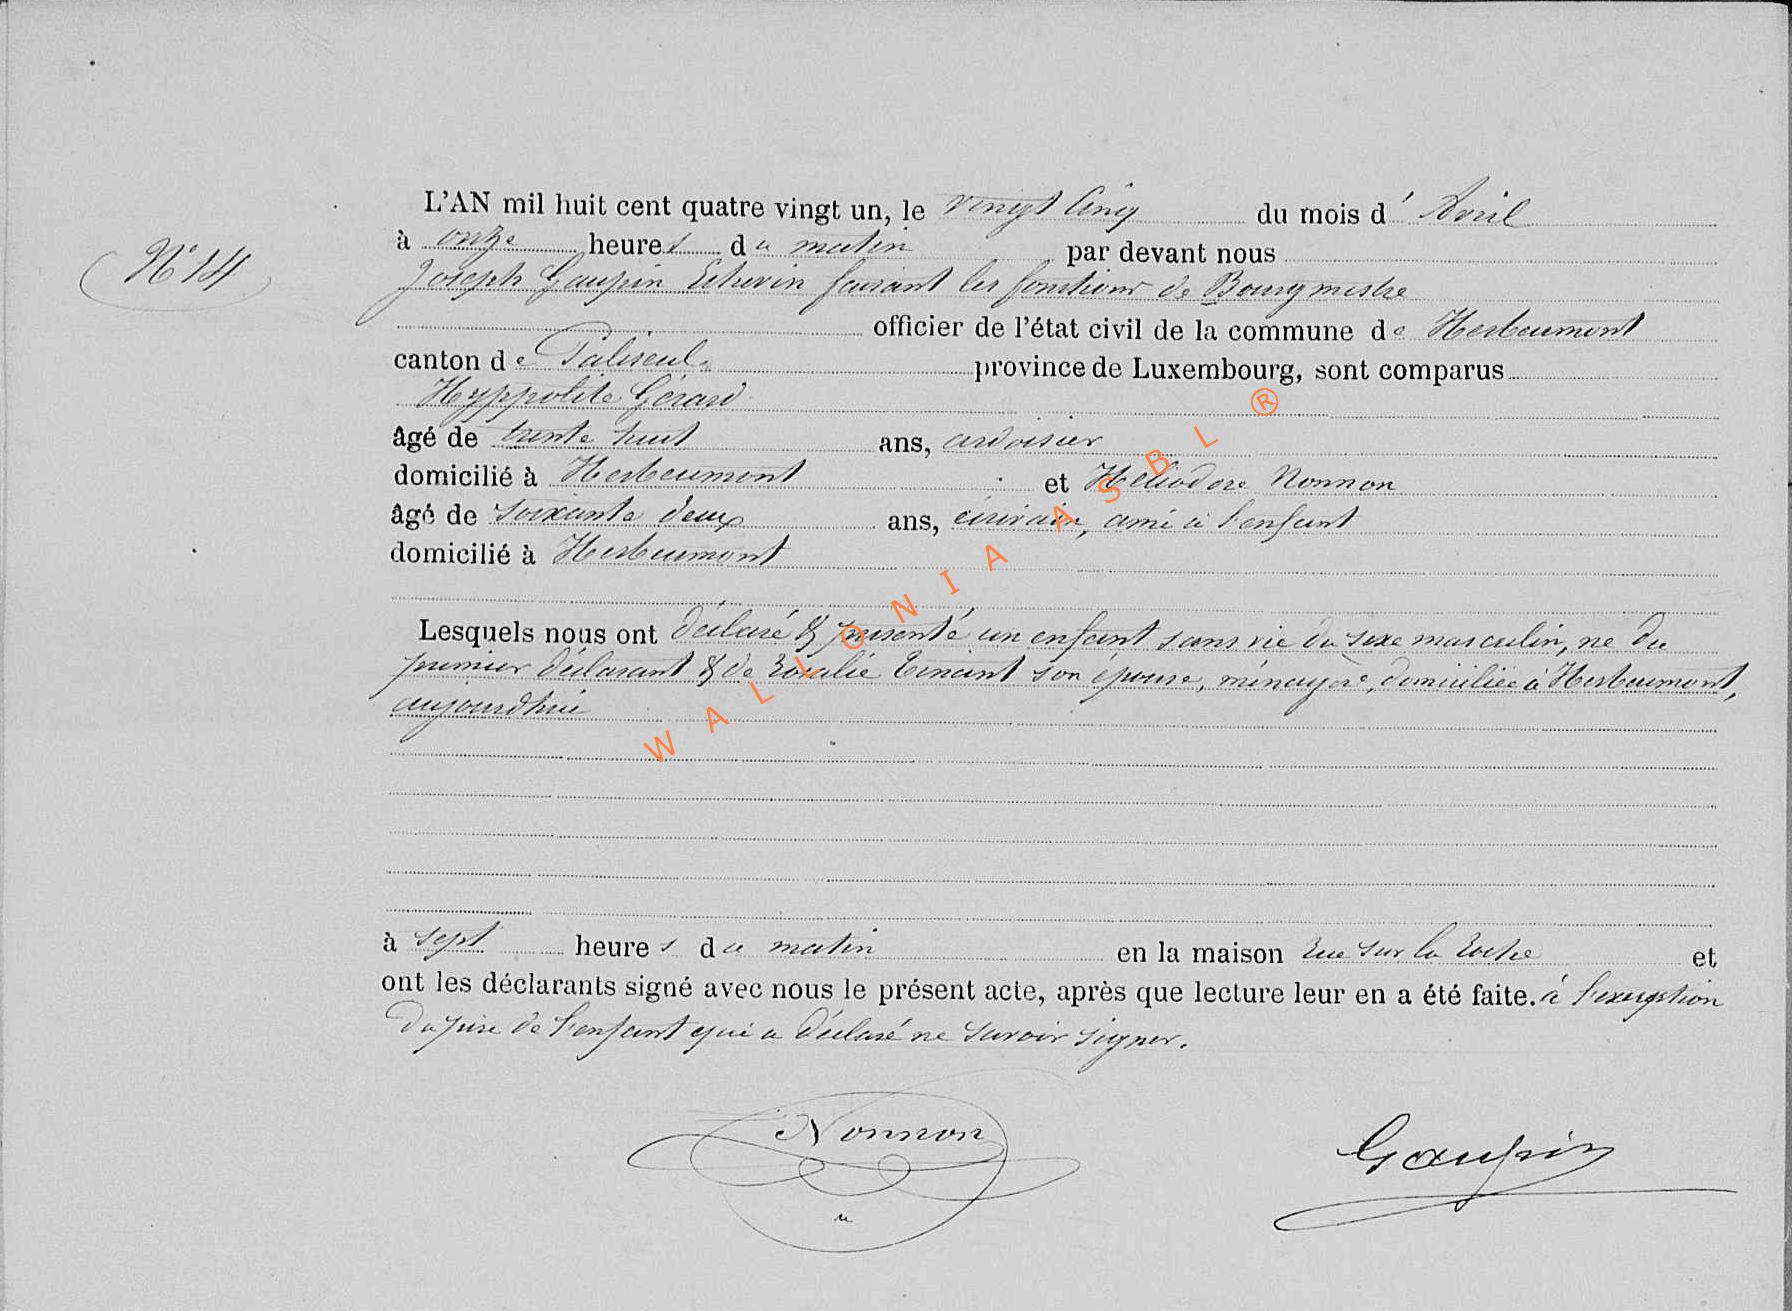 L'AN mil huit cent quatre vingt un, le vingt cinq du mois d' Avril
N° 14
à onze heures du matin par devant nous
Joseph Gaupin Echevin faisant les fonctions de Bourgmestre
officier de l'état civil de la commune de Herbeumont
canton de Paliseul province de Luxembourg, sont comparus
Hyppolite Gérard
âgé de trente huit ans, ardoisier
domicilié à Herbeumont et Héliodore Nonnon
âgé de soixante deux ans, écrivain, ami à l'enfant
domicilié à Herbeumont
Lesquels nous ont déclaré & présenté un enfant sans vie du sexe masculin, né du
premier déclarant & de Rosalie Tinant son épouse, ménagère, domiciliée à Herbeumont,
aujourdhui
à sept heures du matin en la maison rue sur la Roche et
ont les déclarants signé avec nous le présent acte, après que lecture leur en a été faite. à l'exception
du père de l'enfant qui a déclaré ne savoir signer.
Nonnon
Gaupin
WALLONIA ASBL ®